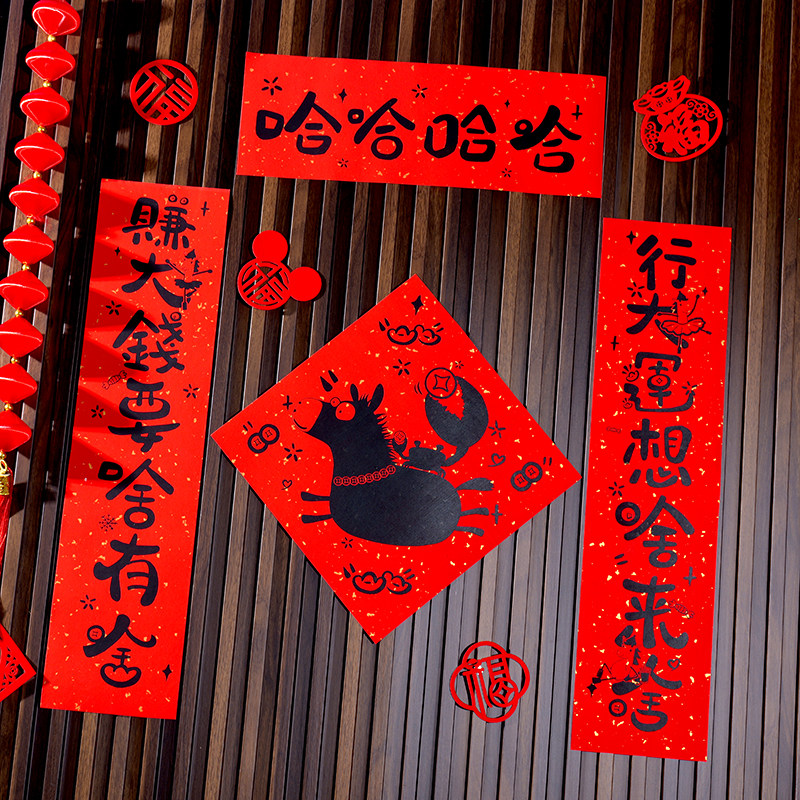 哈哈哈哈
行大運想啥來啥
賺大錢要啥有啥
福
福
福
福